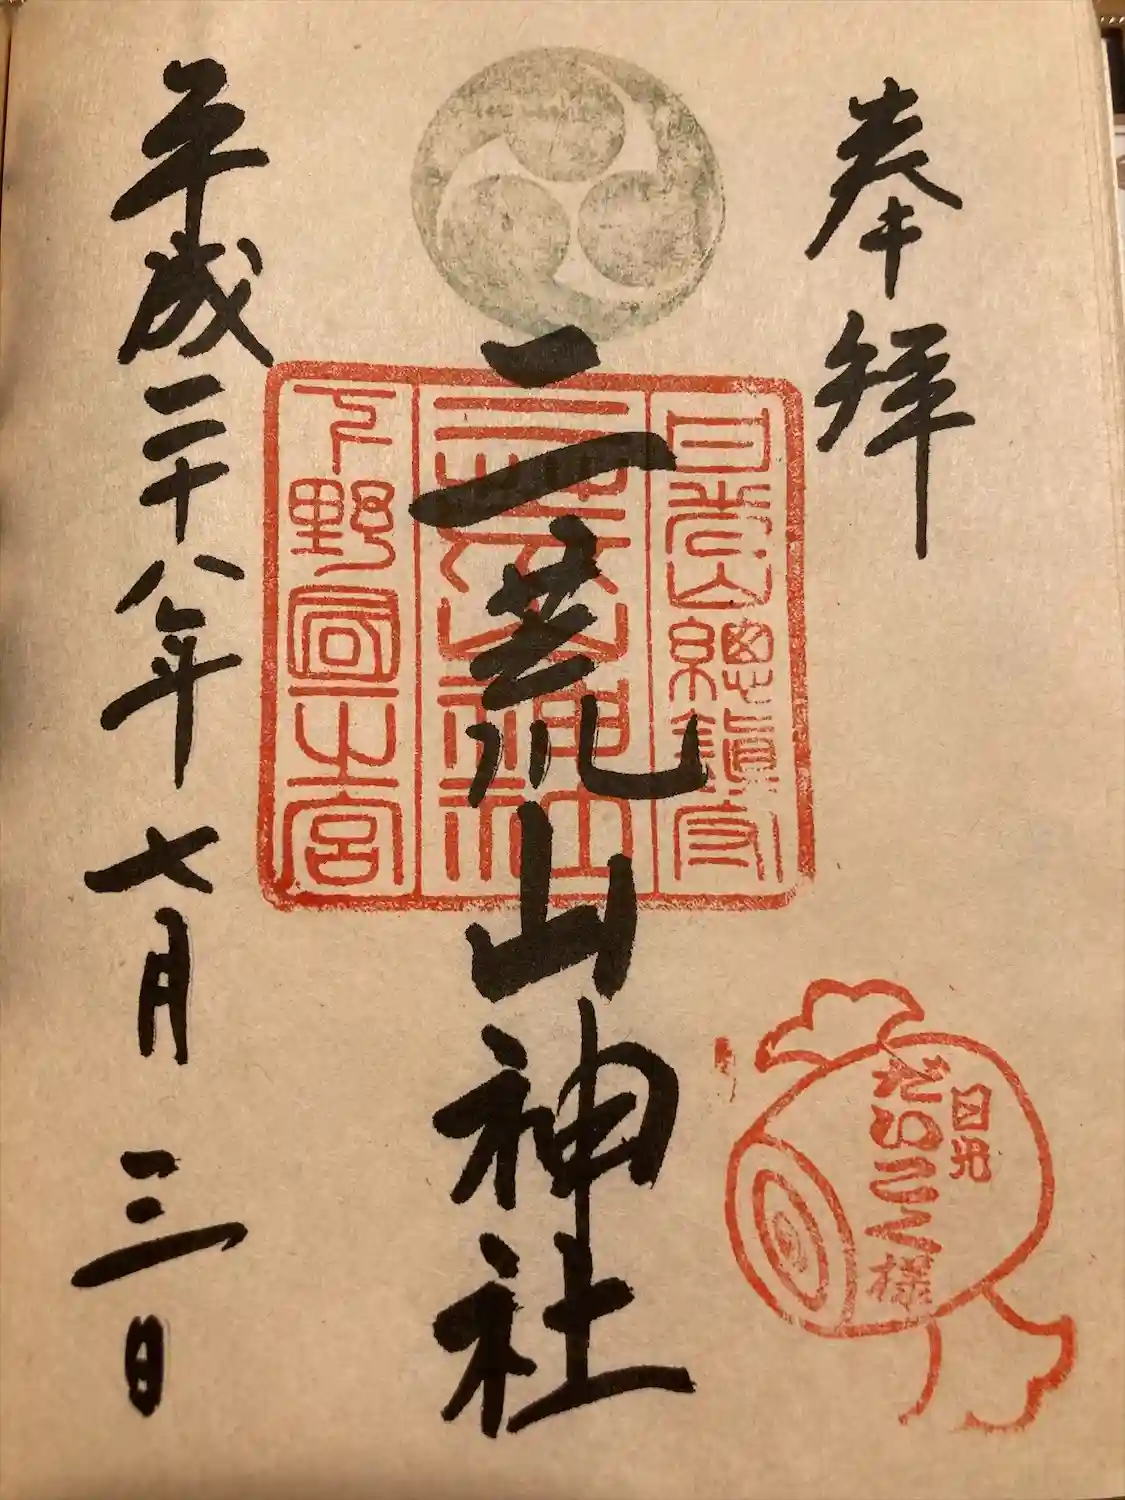 奉拜
日光山總鎮守
二荒山神社
二荒山神社
下野國一之宮
平成二十八年七月三日
日光
だいこく様